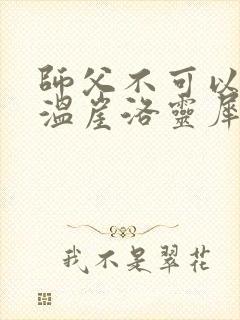 師父不可以
溫崖洛靈犀
我不是翠花